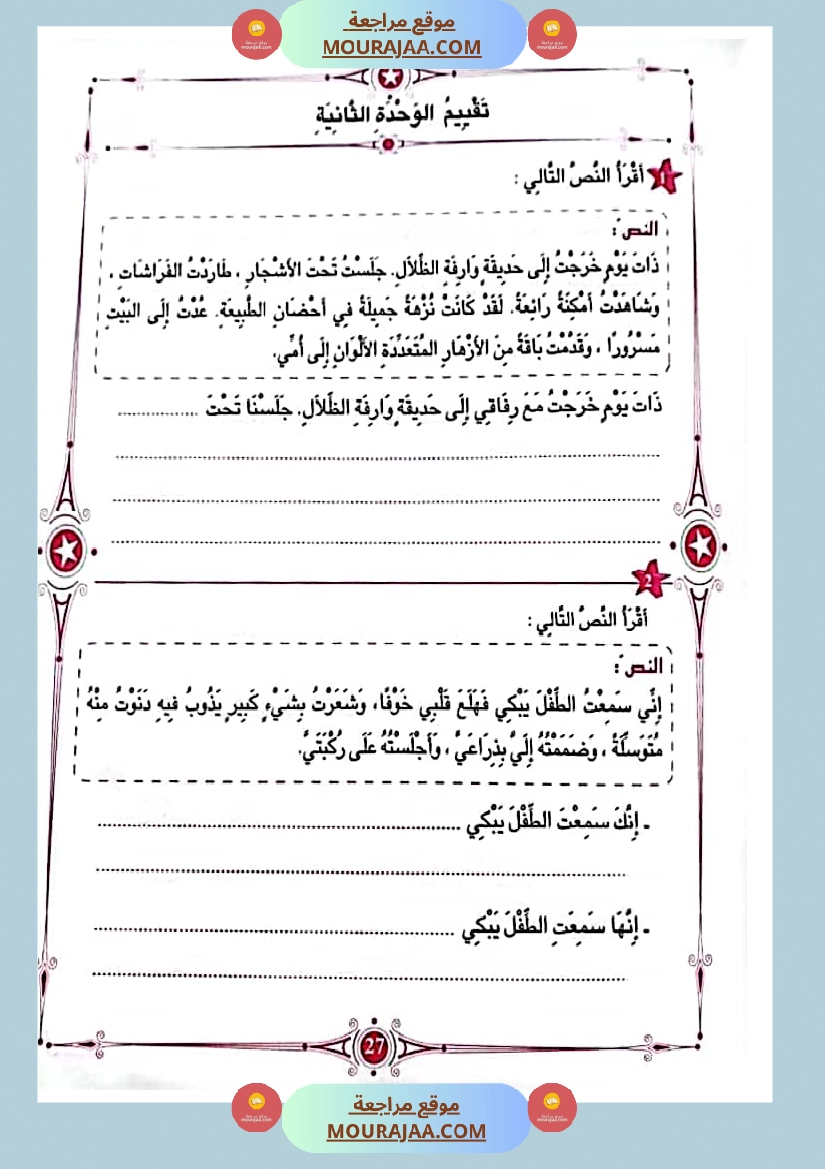 موقع مراجعة
MOURAJAA.COM
تَقْيِيمُ الوَحْدَةِ الثَّانِيَةِ
1 أَقْرَأُ النَّصَّ التَّالِي :
النص :
ذَاتَ يَوْمٍ خَرَجْتُ إِلَى حَدِيقَةٍ وَارِفَةِ الظِّلاَلِ. جَلَسْتُ تَحْتَ الأَشْجَارِ ، طَارَدْتُ الفَرَاشَاتِ ،
وَشَاهَدْتُ أَمْكِنَةً رَائِعَةً. لَقَدْ كَانَتْ نُزْهَةً جَمِيلَةً فِي أَحْضَانِ الطَّبِيعَةِ. عُدْتُ إِلَى البَيْتِ
مَسْرُورًا ، وَقَدَّمْتُ بَاقَةً مِنَ الأَزْهَارِ المُتَعَدِّدَةِ الأَلْوَانِ إِلَى أُمِّي.
ذَاتَ يَوْمٍ خَرَجْتُ مَعَ رِفَاقِي إِلَى حَدِيقَةٍ وَارِفَةِ الظِّلاَلِ. جَلَسْنَا تَحْتَ ................
2
أَقْرَأُ النَّصَّ التَّالِي :
النص :
إِنِّي سَمِعْتُ الطِّفْلَ يَبْكِي فَهَلَعَ قَلْبِي خَوْفًا، وَشَعَرْتُ بِشَيْءٍ كَبِيرٍ يَذُوبُ فِيهِ دَنَوْتُ مِنْهُ
مُتَوَسِّلَةً ، وَضَمَمْتُهُ إِلَيَّ بِذِرَاعَيَّ ، وَأَجْلَسْتُهُ عَلَى رُكْبَتَيَّ.
- إِنَّكَ سَمِعْتَ الطِّفْلَ يَبْكِي ................
- إِنَّهَا سَمِعَتِ الطِّفْلَ يَبْكِي ................
27
موقع مراجعة
MOURAJAA.COM